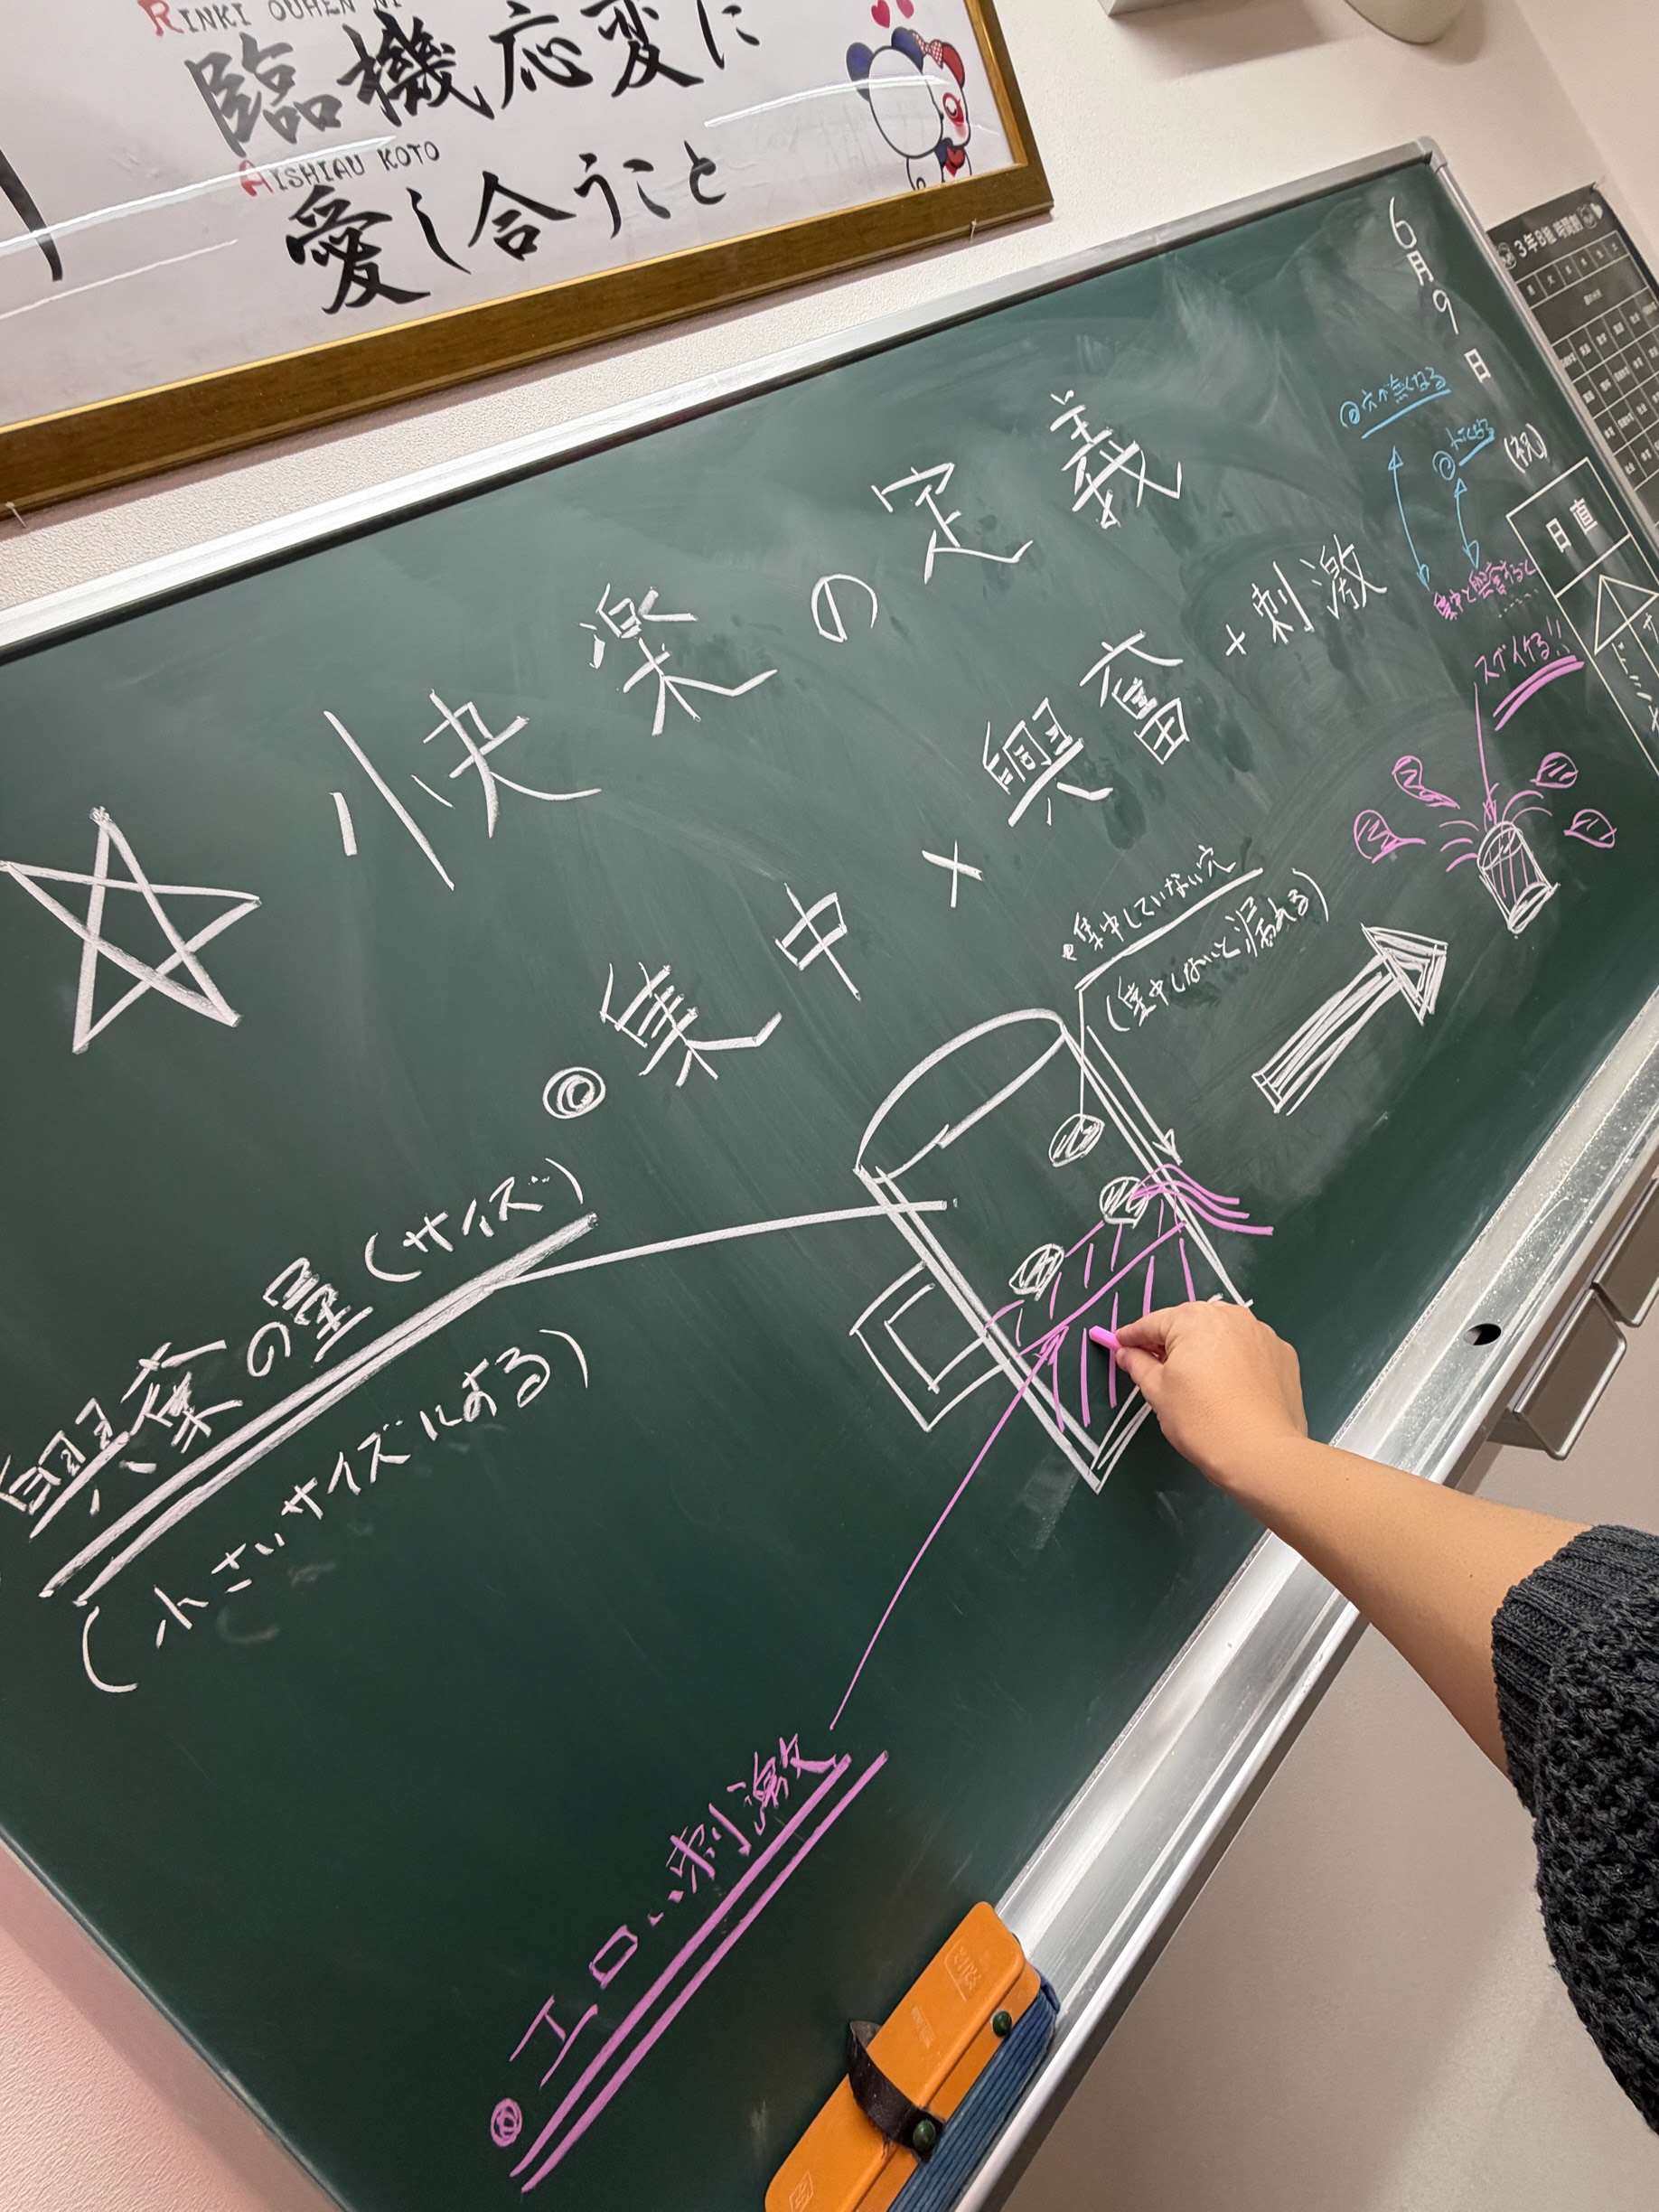 RINKI OUHEN NI
臨機応変に
AISHIAU KOTO
愛し合うこと
3年B組 時間割
6月9日(祝)
日直
快楽の定義
◎集中×興奮+刺激
◎穴が無くなる
集中と興奮すると
スゲイける!!
・集中していない穴
(集中しないと漏れる)
興奮の量(サイズ)
(小さいサイズにはる)
◎エロい刺激